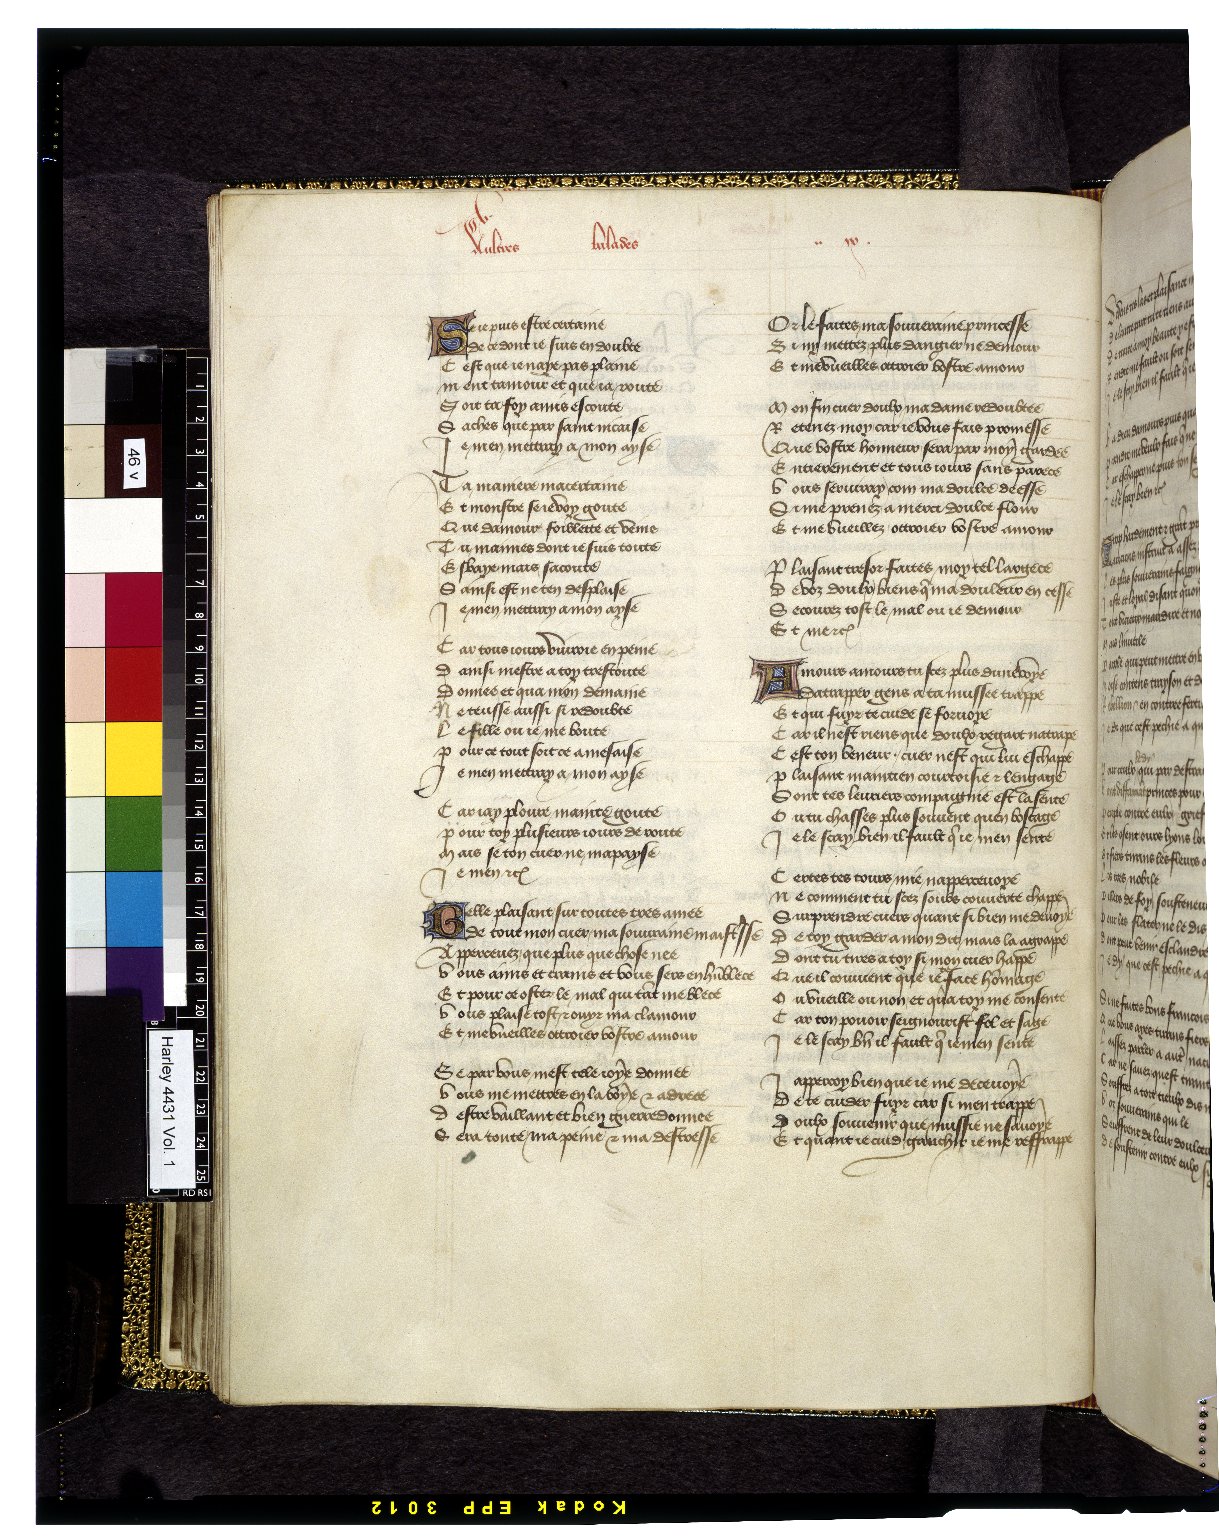 Aultres balades
.. xv .
Se ie puis estre certaine
de ce dont ie suis en doubte
C est que ie naye pas plaine
m ent tamour et que ia route
S oit ta foy amis escoute
S aches que par saint nicaise
I e men mettray a mon ayse
T a maniere macertaine
E t monstre se ie voy goute
Q ue damour foiblette et veine
T u maimes dont ie suis toute
E sbaye mais sacoute
S ainsi est ne ten desplaise
I e men mettray a mon ayse
C ar tous iours viuroie en peine
D ainsi mestre a toy trestoute
D onnee et qua mon demaine
N e teusse aussi si redoubte
L e fille ou ie me boute
P our ce tout soit ce a mesaise
I e men mettray a mon ayse
C ar iay ploure mainte goute
P our toy plusieurs iours de route
M ais se ton cuer ne mapayse
I e men etc
Belle plaisant sur toutes tres amee
de tout mon cuer ma souueraine maistresse
A pperceuez que plus que chose nee
V ous aims et crains et vous sers en humblece
E t pour ce ostez le mal qui tant me blece
V ous plaise tost z ouyr ma clamour
E t me vueilles ottroier vostre amour
S e par vous mest tele ioye donnee
V ous me mettres en la voye z adrece
D estre vaillant et bien guerredonnee
S era toute ma peine z ma destresse
Or le faites ma souueraine princesse
S i ny mettez plus dangier ne demour
E t me vueilles ottroier vostre amour
M on fin cuer doulx ma dame redoubtee
R etenez moy car ie vous fais promesse
Q ue vostre honneur sera par moy gardee
E ntierement et tous iours sans parece
V ous seruiray com ma doulce deesse
S i me prenez a merci doulce flour
E t me vueillez ottroier vostre amour
P laisant tresor faites moy tel largece
D e voz doulx biens que ma douleur en cesse
S ecourez tost le mal ou ie demour
E t me etc
Amours amours tu scez plus dune voye
Dattrapper gens a ta mussee trappe
E t qui fuyr te cuide se foruoye
C ar il nest riens que doulx regart natrape
C est ton veneur / cuer nest qui lui eschappe
P laisant maintien courtoisie z lengage
S ont tes leuriers compaignie est la sente
O u tu chasses plus souuent quen boscage
I e le scay bien il fault que ie men sente
C ertes tes tours mie napperceuoye
N e comment tu scez soubs couuerte chappe
S urprendre cuers quant si bien me deuoye
D e toy garder a mon dit mais la agrappe
D ont tu tires a toy si mon cuer happe
Q ue il conuient que ie face hommage
O u vueille ou non et qua toy me consente
C ar ton pouoir seignourist fol et sage
I e le scay bien il fault que ie men sente
I apperçoy bien que ie me deceuoye
D e te cuider fuyr car si men trappe
D oulx souuenir que mussie ne sauoye
E t quant ie cuid gauchir ie me reffrappe
46 v
Harley 4431 Vol. 1
Kodak EPP 3012